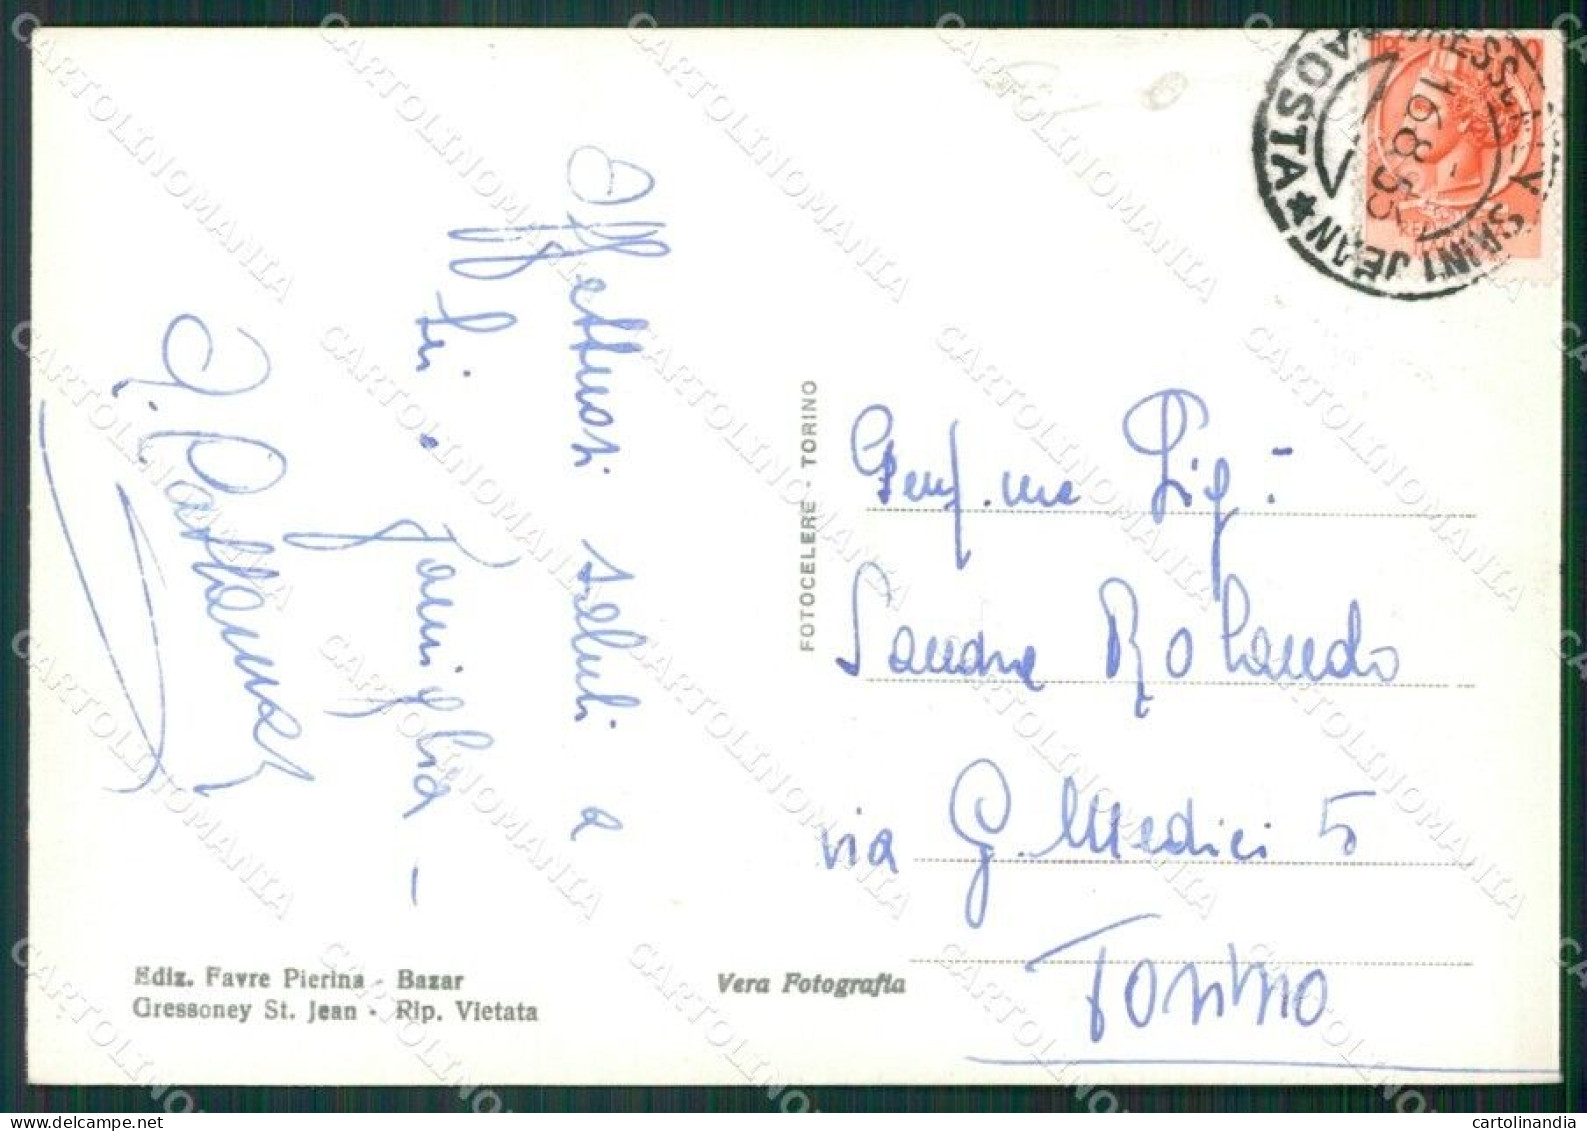 GRESSONEY SAINT JEAN * AOSTA
16 8 55
Affettuosi saluti a
Lei e famiglia -
FOTOCELERE - TORINO
Gent.ma Sig.
Sandra Rolando
via G. Medici 5
Torino
Ediz. Favre Pierina - Bazar
Gressoney St. Jean - Rip. Vietata
Vera Fotografia
CARTOLINOMANIA
cartolinandia